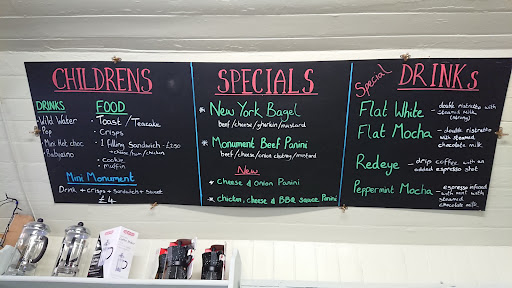 CHILDRENS
DRINKS
- Wild Water
- Pop
- Mini Hot choc
- Babycino
FOOD
- Toast / Teacake
- Crisps
- 1 filling Sandwich - £1.50
+ cheese / ham / chicken
- Cookie
- Muffin
Mini Monument
Drink + crisps + Sandwich + Sweet
£4
SPECIALS
* New York Bagel
beef / cheese / gherkin / mustard
* Monument Beef Panini
beef / cheese / onion chutney / mustard
New
* Cheese & Onion Panini
* chicken, cheese & BBQ sauce Panini
Special DRINKs
Flat White - double ristretto with
steamed milk
(strong)
Flat Mocha - double ristretto
with steamed
chocolate milk
Redeye - drip coffee with an
added espresso shot
Peppermint Mocha - espresso infused
with mint with
steamed
chocolate milk